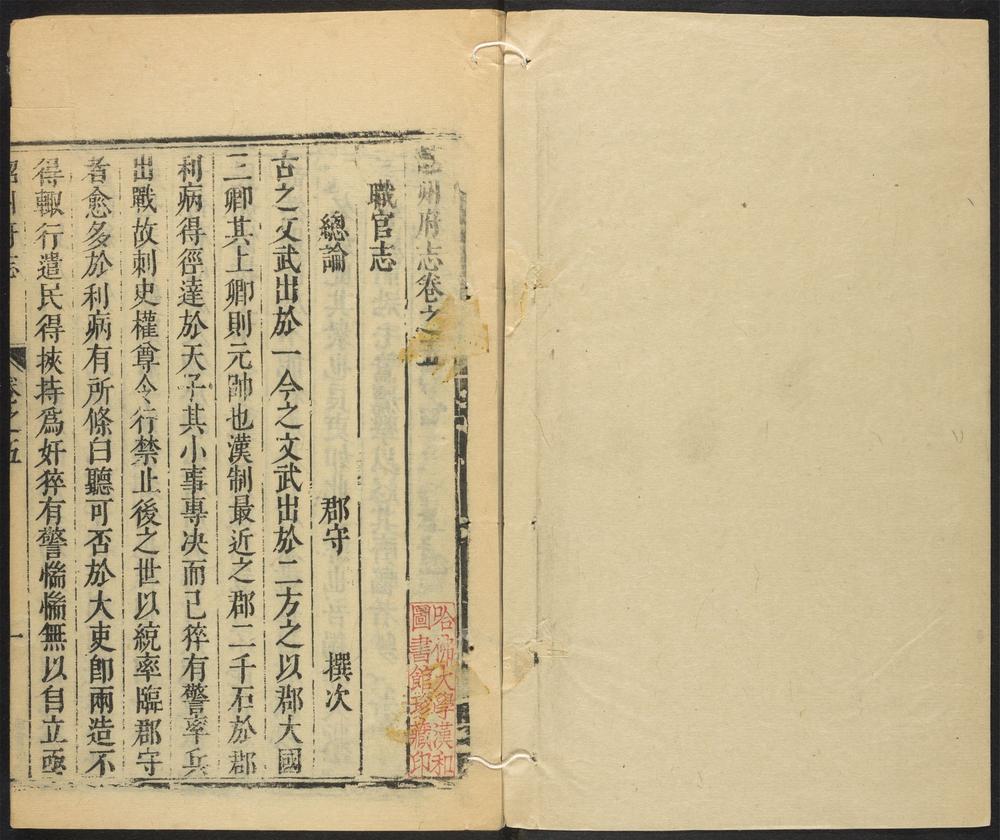 州府志卷之五
職官志
總論 郡守 撰次
古之文武出於一今之文武出於二方之以郡大國
三卿其上卿則元帥也漢制最近之郡二千石於郡
利病得徑達於天子其小事專决而已猝有警率兵
出戰故刺史權尊令行禁止後之世以統率臨郡守
者愈多於利病有所條白聽可否於大吏卽兩造不
得輙行遣民得挾持爲奸猝有警惴惴無以自立亟
卷之五 一
哈佛大學漢和
圖書館珍藏印